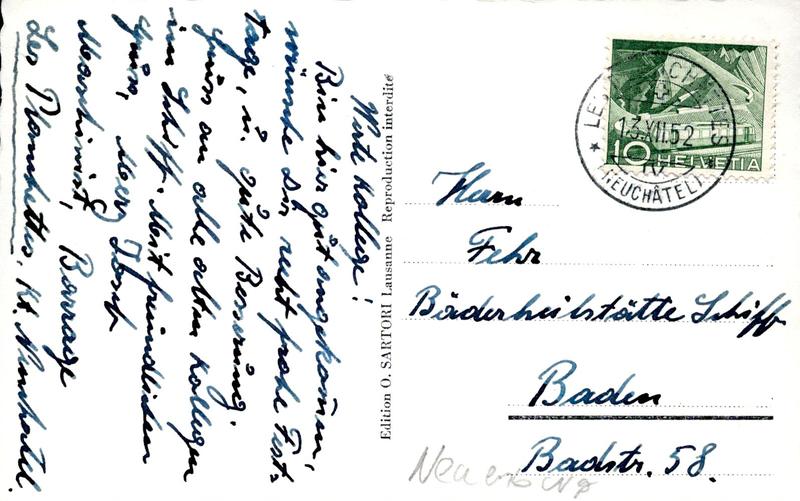 Werte Kollege!
Bin hier gut angekommen,
wünsche Dir recht frohe Fest-
tage, u. gute Besserung.
Gruss an alle alten Kollegen
im Schiff. Mit freundlichen
Gruss, Josef
Maschinist, Barrage
Les Planchettes, Kt. Neuchatel.
Edition O. SARTORI Lausanne Reproduction interdite
13.XII.52
NEUCHÂTEL
10 HELVETIA
Herrn
Fehr
Bäderheilstätte Schiff
Baden
Badstr. 58.